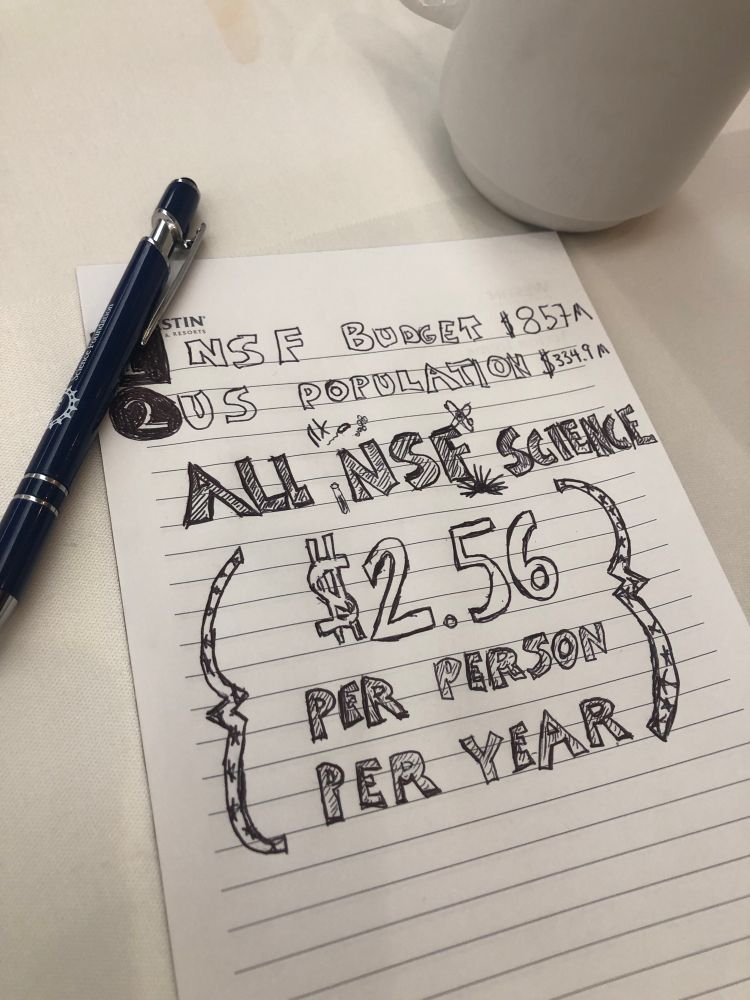 STIN
& RESORTS
Science Foundation
NSF BUDGET $857M
2 US POPULATION $334.9M
ALL NSF SCIENCE
$2.56
PER PERSON
PER YEAR